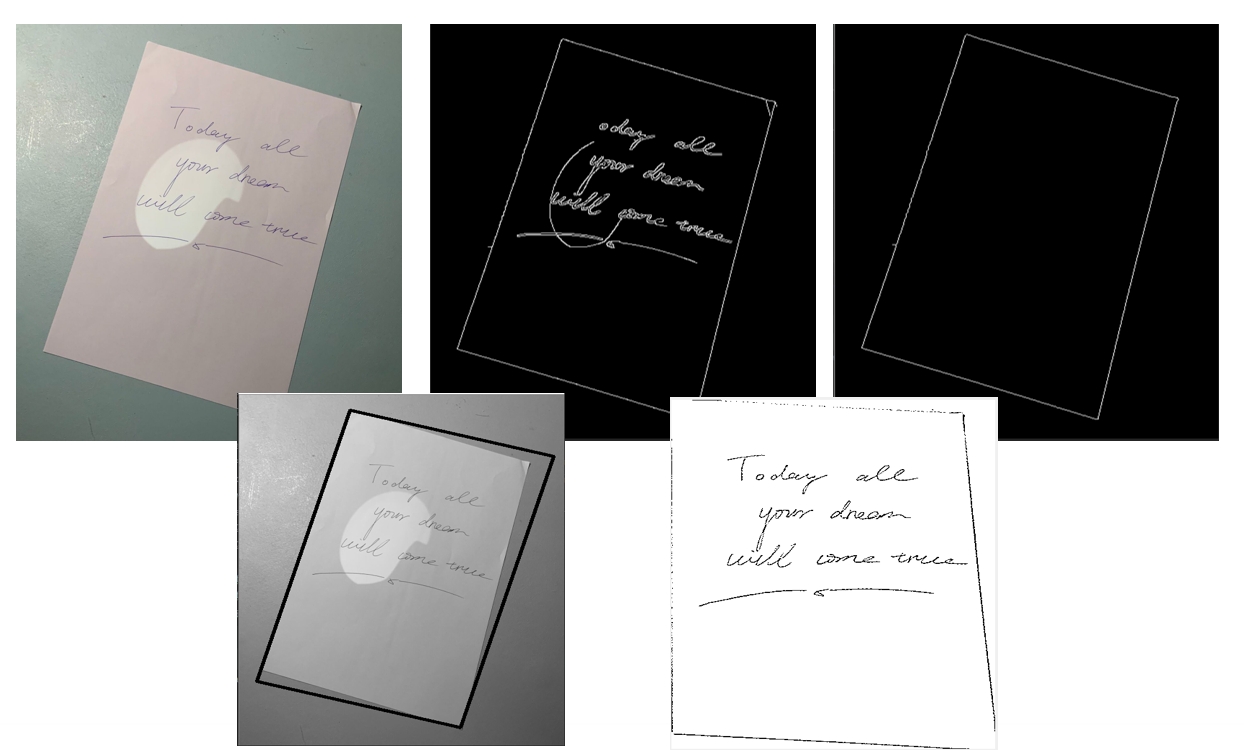 Today all
your dream
will come true
oday all
your dream
will come true
Today all
your dream
will come true
Today all
your dream
will come true